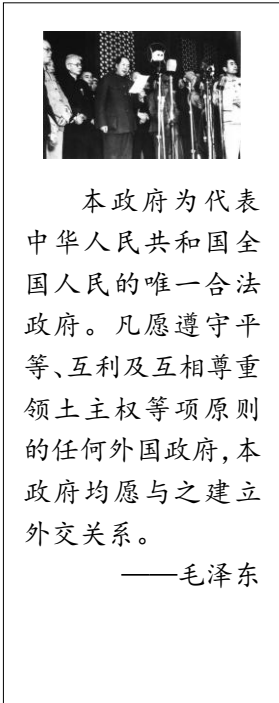 本政府为代表
中华人民共和国全
国人民的唯一合法
政府。凡愿遵守平
等、互利及互相尊重
领土主权等项原则
的任何外国政府,本
政府均愿与之建立
外交关系。
——毛泽东